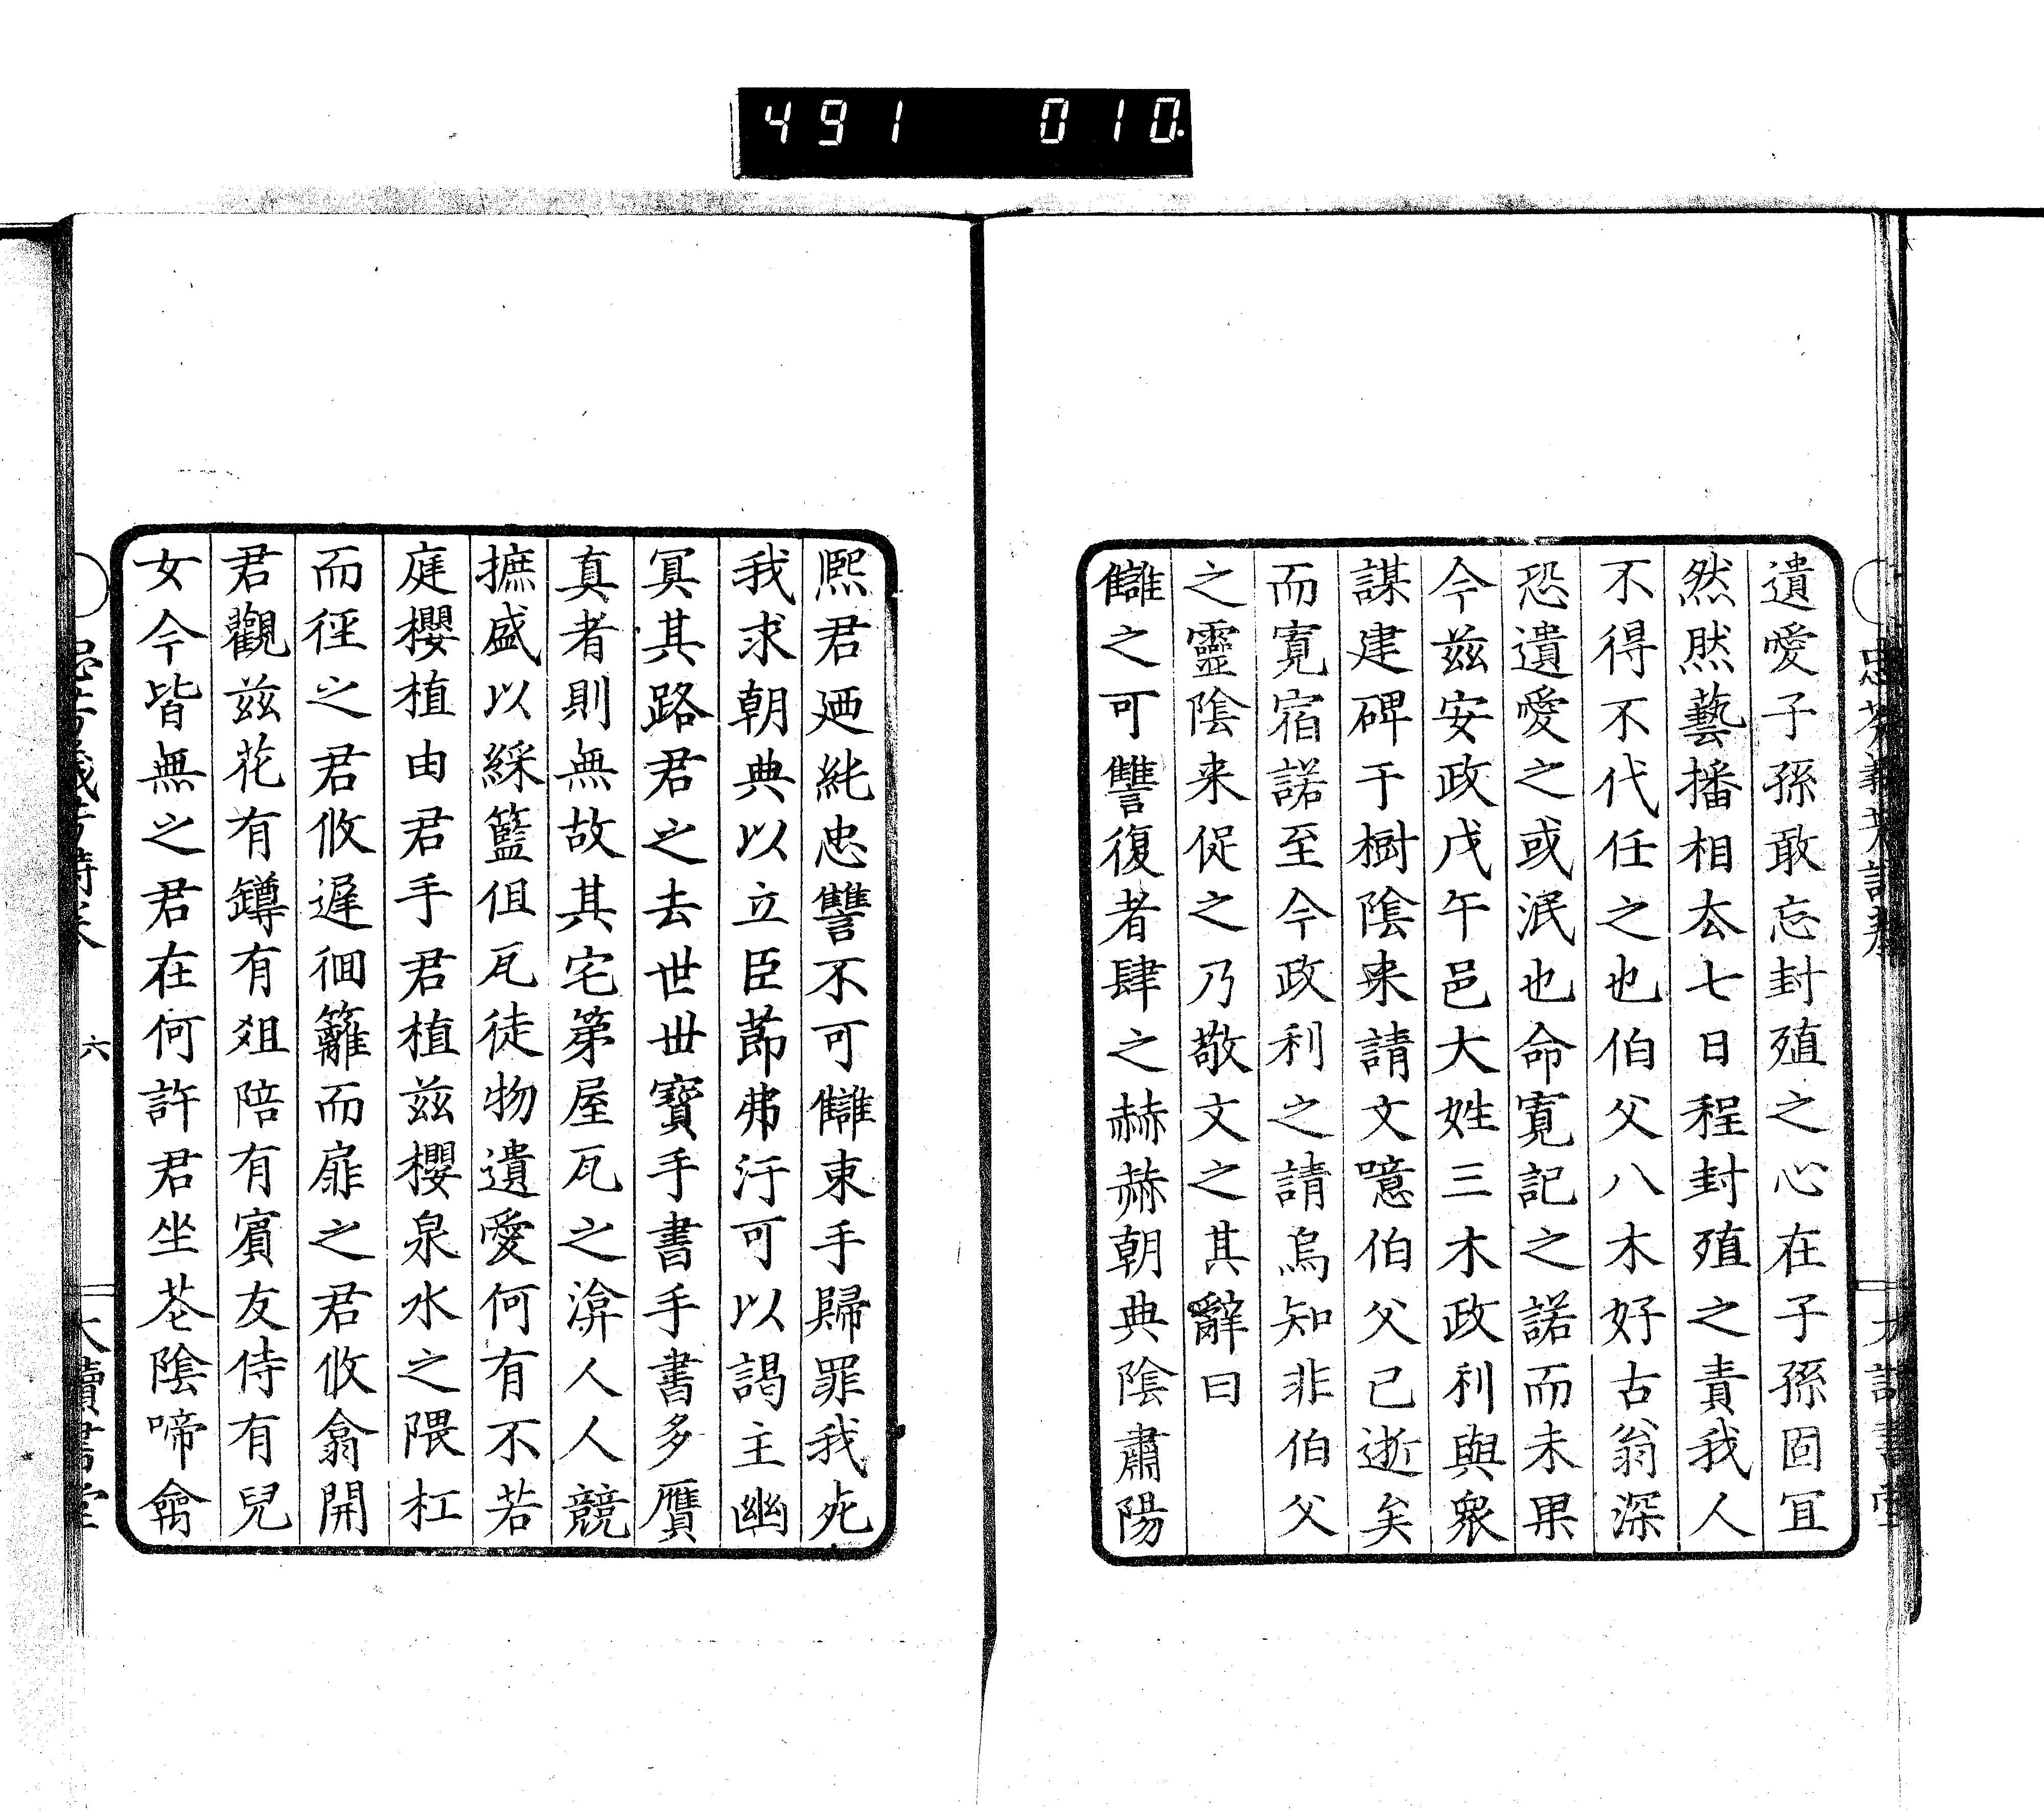 491 010
遺愛子孫敢忘封殖之心在子孫固宜
然然藝播相去七日程封殖之責我人
不得不代任之也伯父八木好古翁深
恐遺愛之或泯也命寬記之諾而未果
今茲安政戊午邑大姓三木政利與衆
謀建碑于樹陰来請文噫伯父已逝矣
而寬宿諾至今政利之請烏知非伯父
之靈陰来促之乃敬文之其辭曰
讎之可讐復者肆之赫赫朝典陰肅陽
熙君廼純忠讐不可讎束手歸罪我死
我求朝典以立臣節弗汙可以謁主幽
冥其路君之去世世寶手書手書多贋
真者則無故其宅第屋瓦之渰人人競
摭盛以綵籃但瓦徒物遺愛何有不若
庭櫻植由君手君植茲櫻泉水之隈杠
而徑之君攸遲徊籬而扉之君攸翕開
君觀茲花有罇有俎陪有賓友侍有兒
女今皆無之君在何許君坐花陰啼禽
六